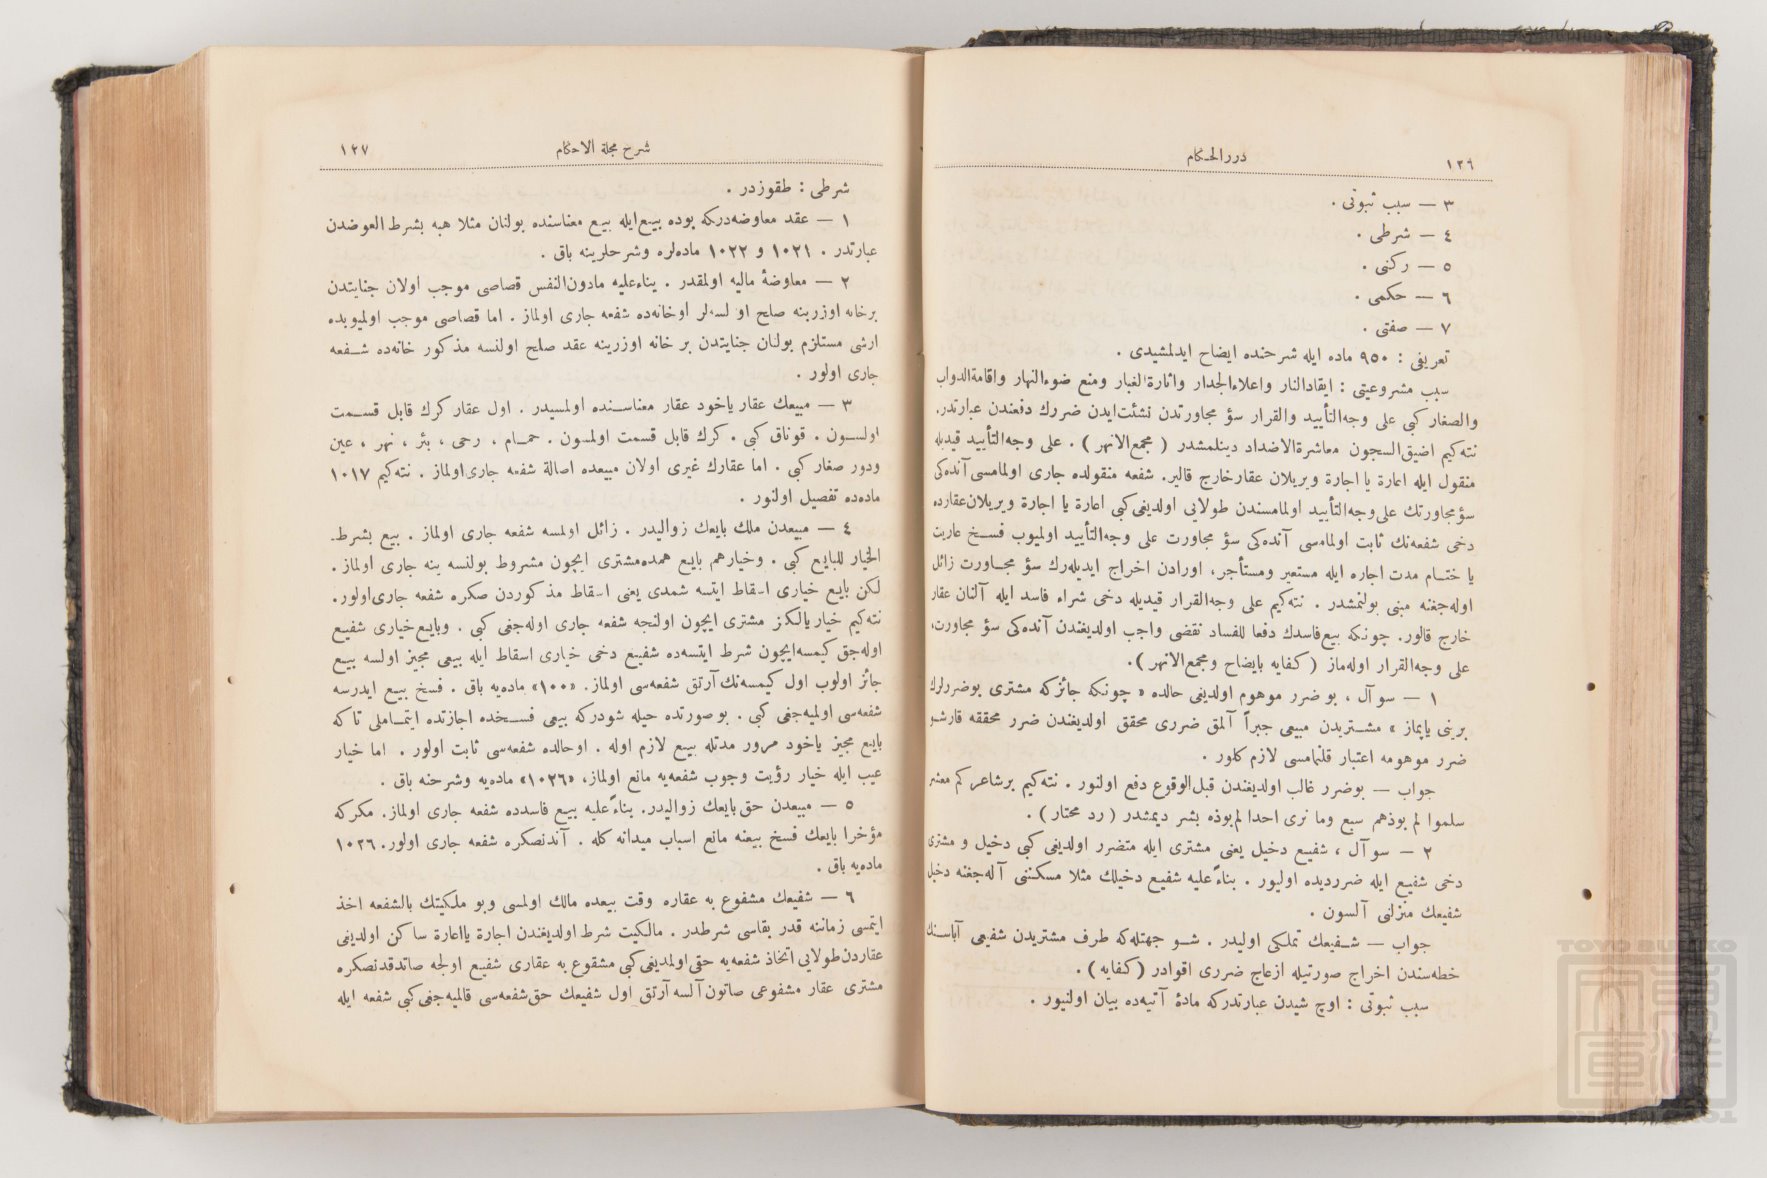 ١٢٦
دررالحكام
٣ — سبب ثبوتى .
٤ — شرطى .
٥ — ركنى .
٦ — حكمى .
٧ — صفتى .
تعريفى : ٩٥٠ ماده ايله شرحنده ايضاح ايدلمشيدى .
سبب مشروعيتى : ايقادالنار واعلاءالجدار واثارةالغبار ومنع ضوءالنهار واقامةالدواب
والصغار كبى على وجه‌التأييد والقرار سؤ مجاورتدن نشئت‌ايدن ضررك دفعندن عبارتدر.
نته‌كيم اضيق‌السجون معاشرةالاضداد دينلمشدر ( مجمع‌الانهر ) . على وجه‌التأييد قيديله
منقول ايله اعارة يا اجارة ويريلان عقار خارج قالير. شفعه منقولده جارى اولمامسى آنده‌كى
سؤ مجاورتك على‌وجه‌التأييد اولمامسندن طولايى اولديغى كبى اعارة يا اجارة ويريلان‌عقارده
دخى شفعه‌نك ثابت اولمامه‌سى آنده‌كى سؤ مجاورت على وجه‌التأييد اولميوب فسخ عاريت
يا ختام مدت اجاره ايله مستعير ومستأجر، اورادن اخراج ايديله‌رك سؤ مجاورت زائل
اوله‌جغنه مبنى بولنمشدر . نته‌كيم على وجه‌القرار قيديله دخى شراء فاسد ايله آلنان عقار
خارج قالور. چونكه بيع‌فاسدك دفعا للفساد نقضى واجب اولديغندن آنده‌كى سؤ مجاورت،
على وجه‌القرار اوله‌ماز ( كفايه بايضاح ومجمع‌الانهر ).
١ — سوآل ، بو ضرر موهوم اولديغى حالده « چونكه جائزكه مشترى بوضررلرك
برينى ياپماز » مشتريدن مبيعى جبراً آلمق ضررى محقق اولديغندن ضرر محققه قارشو
ضرر موهومه اعتبار قلنمامسى لازم كلور .
جواب — بوضرر غالب اولديغندن قبل‌الوقوع دفع اولنور . نته‌كيم برشاعر كم معشر
سلموا لم يوذهم سبع وما نرى احدا لم يوذه بشر ديمشدر ( رد محتار ) .
٢ — سوآل ، شفيع دخيل يعنى مشترى ايله متضرر اولديغى كبى دخيل و مشترى
دخى شفيع ايله ضررديده اوليور . بناءً عليه شفيع دخيلك مثلا مسكننى آله‌جغنه دخيل
شفيعك منزلنى آلسون .
جواب — شفيعك تملكى اوليدر . شو جهتله‌كه طرف مشتريدن شفيعى آباسنك
خطه‌سندن اخراج صورتيله ازعاج ضررى اقوادر ( كفايه ) .
سبب ثبوتى : اوچ شيدن عبارتدركه مادۀ آتيه‌ده بيان اولنيور .
شرح مجلة الاحكام
١٢٧
شرطى : طقوزدر .
١ — عقد معاوضه‌دركه بوده بيع‌ايله بيع معناسنده بولنان مثلا هبه بشرط العوضدن
عبارتدر . ١٠٢١ و ١٠٢٢ ماده‌لره وشرحلرينه باق .
٢ — معاوضۀ ماليه اولمقدر . بناءعليه مادون‌النفس قصاصى موجب اولان جنايتدن
برخانه اوزرينه صلح او لسه‌لر اوخانه‌ده شفعه جارى اولماز . اما قصاصى موجب اولميوبده
ارشى مستلزم بولنان جنايتدن بر خانه اوزرينه عقد صلح اولنسه مذكور خانه‌ده شفعه
جارى اولور .
٣ — مبيعك عقار ياخود عقار معناسنده اولمسيدر . اول عقار كرك قابل قسمت
اولسون . قوناق كبى . كرك قابل قسمت اولمسون . حمام ، رحى ، بئر ، نهر ، عين
ودور صغار كبى . اما عقارك غيرى اولان مبيعده اصالة شفعه جارى‌اولماز . نته‌كيم ١٠١٧
ماده‌ده تفصيل اولنور .
٤ — مبيعدن ملك بايعك زواليدر . زائل اولمسه شفعه جارى اولماز . بيع بشرط‌
الخيار للبايع كبى . وخيارهم بايع همده‌مشترى ايچون مشروط بولنسه ينه جارى اولماز .
لكن بايع خيارى اسقاط ايتسه شمدى يعنى اسقاط مذكوردن صكره شفعه جارى‌اولور.
نته‌كيم خيار يالكز مشترى ايچون اولنجه شفعه جارى اوله‌جغى كبى . وبايع‌خيارى شفيع
اوله‌جق كيمسه‌ايچون شرط ايتسه‌ده شفيع دخى خيارى اسقاط ايله بيعى مجيز اولسه بيع
جائز اولوب اول كيمسه‌نك آرتق شفعه‌سى اولماز. «١٠٠» ماده‌يه باق . فسخ بيع ايدرسه
شفعه‌سى اولميه‌جغى كبى . بوصورتده حيله شودركه بيعى فسخده اجازتده ايتماملى تا كه
بايع مجيز ياخود مرور مدتله بيع لازم اوله . اوحالده شفعه‌سى ثابت اولور . اما خيار
عيب ايله خيار رؤيت وجوب شفعه‌يه مانع اولماز، «١٠٢٦» ماده‌يه وشرحنه باق .
٥ — مبيعدن حق بايعك زواليدر. بناءً عليه بيع فاسدده شفعه جارى اولماز. مكركه
مؤخرا بايعك فسخ بيعنه مانع اسباب ميدانه كله . آندنصكره شفعه جارى اولور. ١٠٢٦
ماده‌يه باق .
٦ — شفيعك مشفوع به عقاره وقت بيعده مالك اولمسى وبو ملكيتك بالشفعه اخذ
ايتمسى زماننه قدر بقاسى شرطدر . مالكيت شرط اولديغندن اجارة يااعارة ساكن اولديغى
عقاردن‌طولايى اتخاذ شفعه‌يه حقى‌اولمديغى‌كبى مشفوع به عقارى شفيع اولجه صاتدقدنصكره
مشترى عقار مشفوعى صاتون آلسه آرتق اول شفيعك حق‌شفعه‌سى قالميه‌جغى‌كبى شفعه ايله
TOYO BUNKO